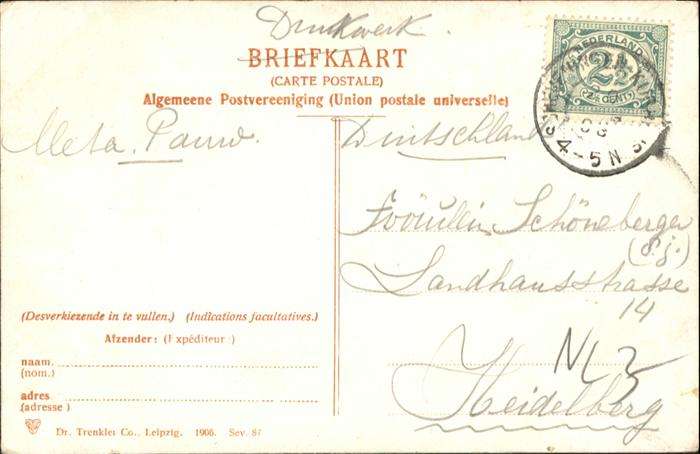 Drukwerk.
BRIEFKAART
(CARTE POSTALE)
Algemeene Postvereeniging (Union postale universelle)
NEDERLAND
2½
CENT
4-5 N
Meta. Pauw.
Duitschland
Fräulein Schöneberger
(S. j.)
Landhausstrasse
14
Heidelberg
(Desverkiezende in te vullen.) (Indications facultatives.)
Afzender: (Expéditeur:)
naam.
(nom.)
adres
(adresse)
Dr. Trenkler Co., Leipzig. 1906. Sev. 87